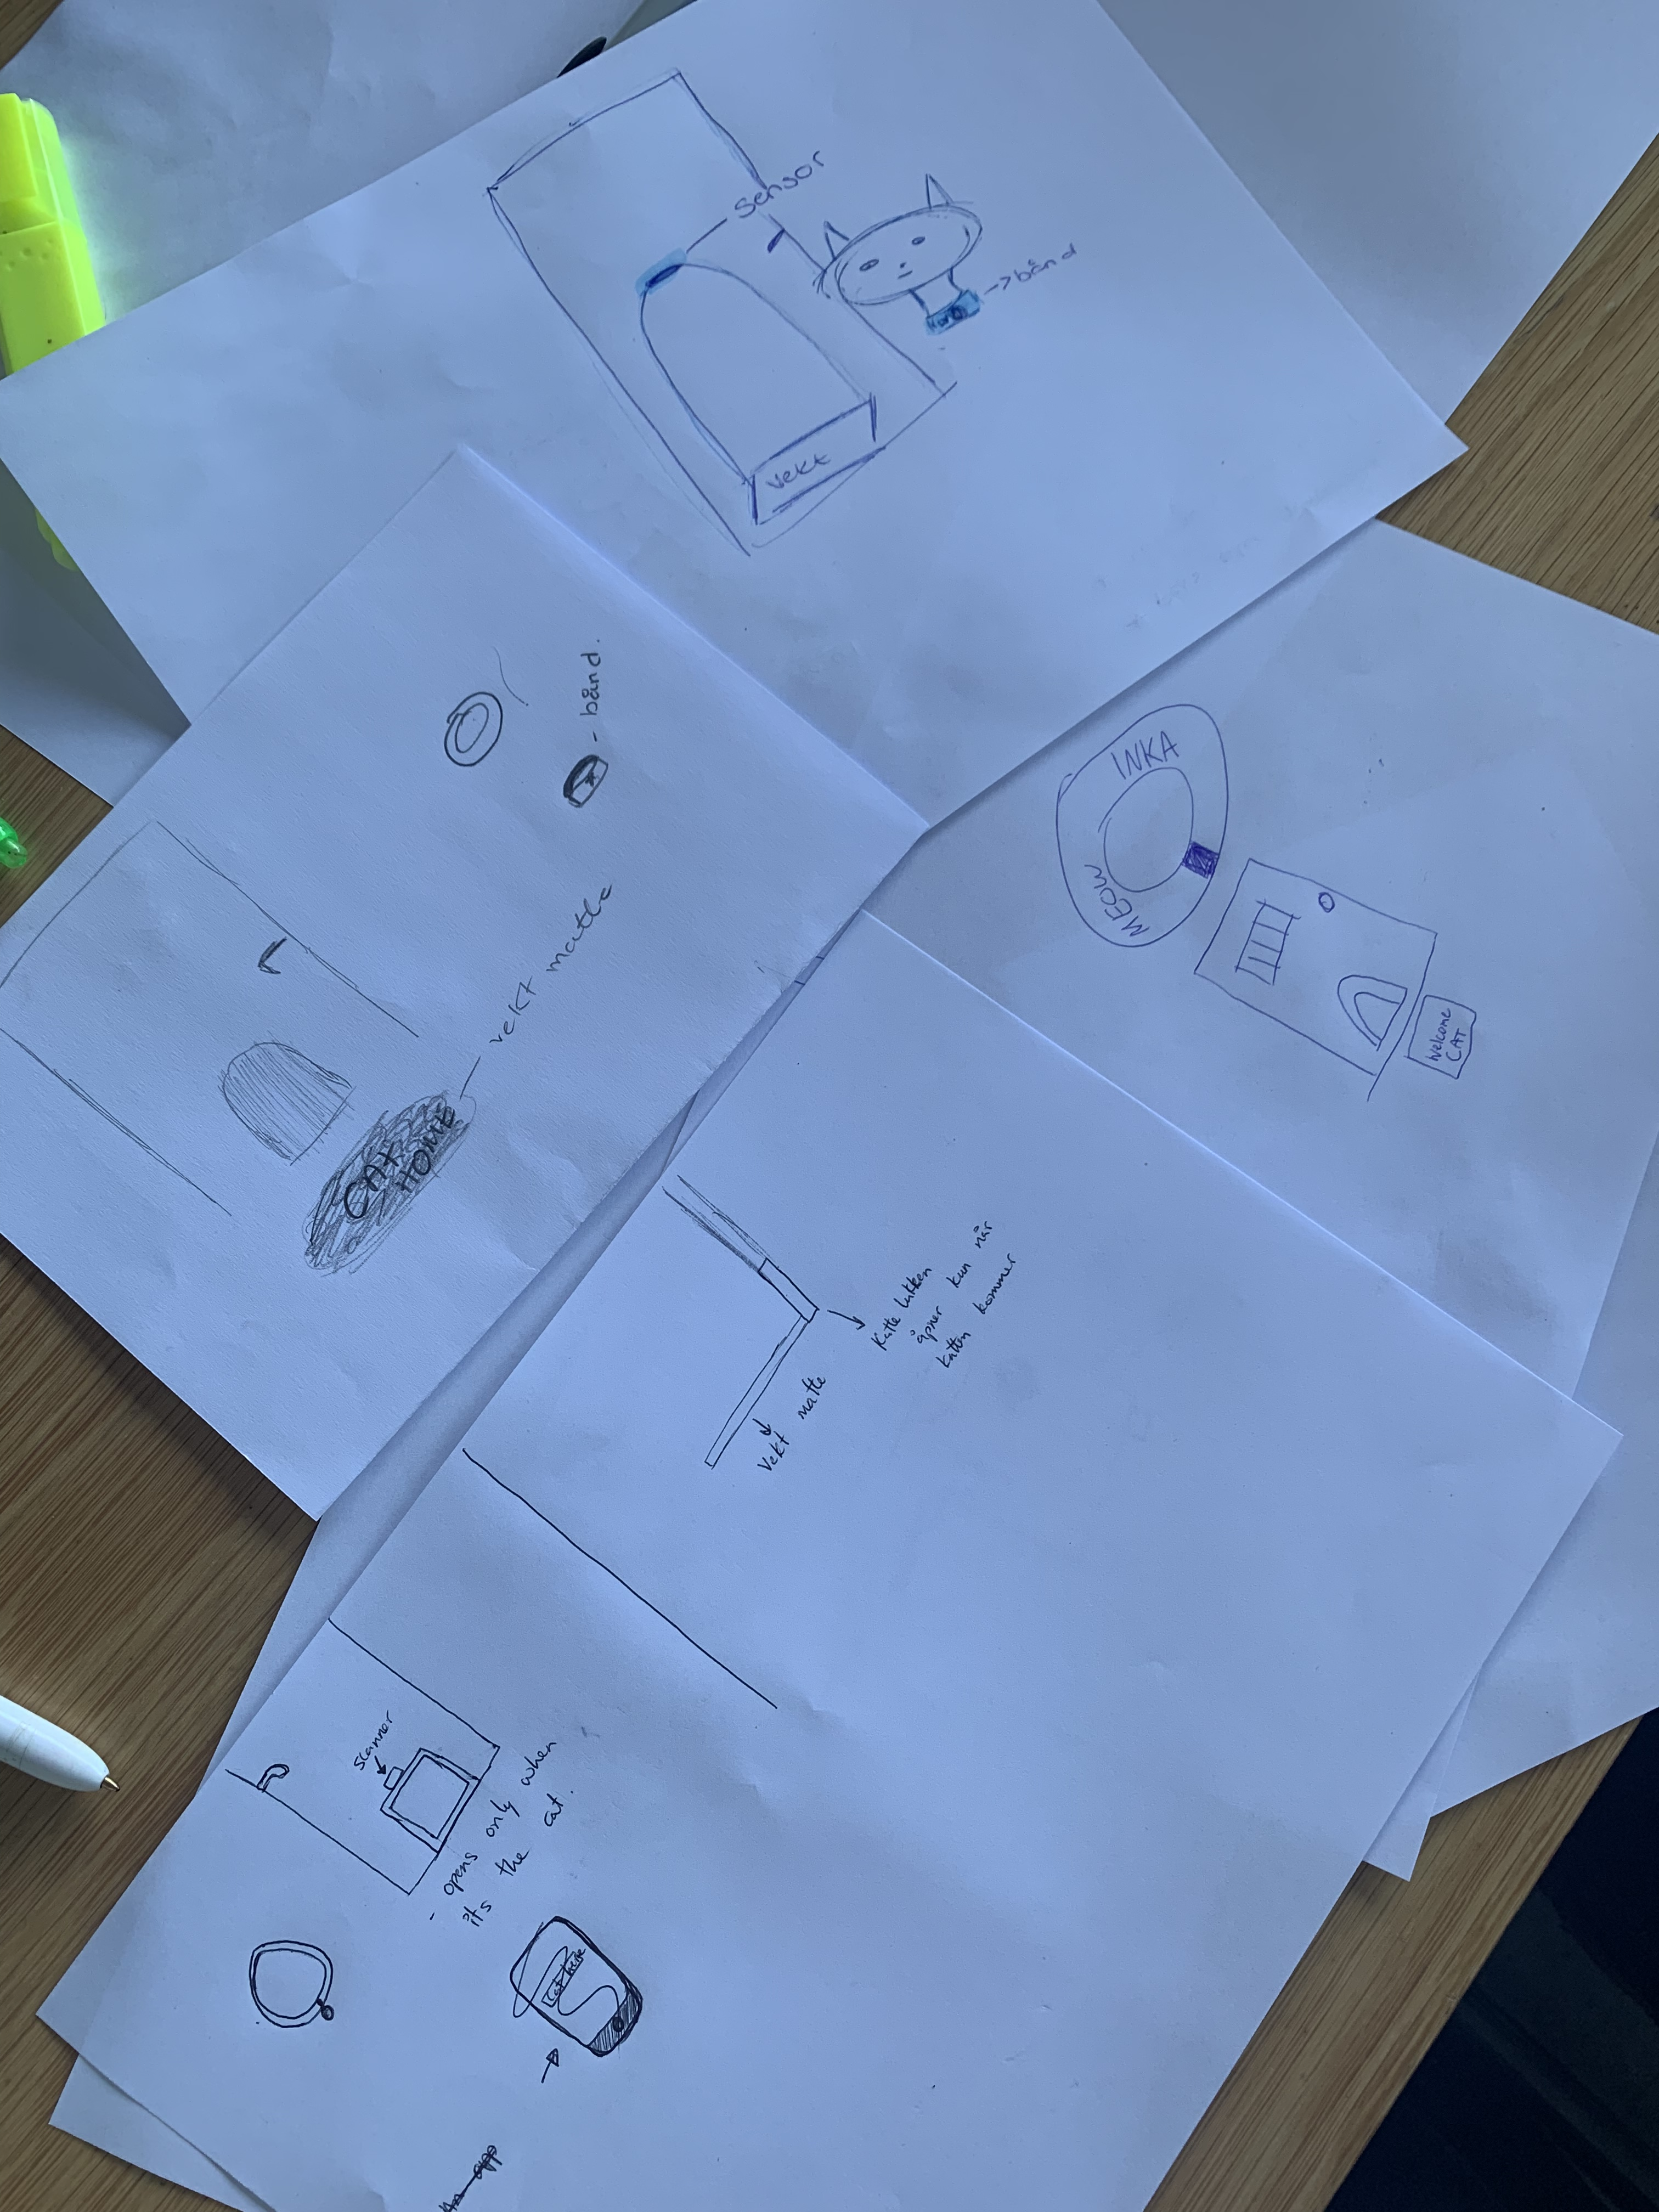 sensor
-> bånd
vekt
- bånd.
vekt matte
CAT
HOME
INKA
MEOW
Welcome
CAT
Katte lukken
åpner kun når
katten kommer
vekt matte
scanner
- opens only when
it's the cat.
Cat here